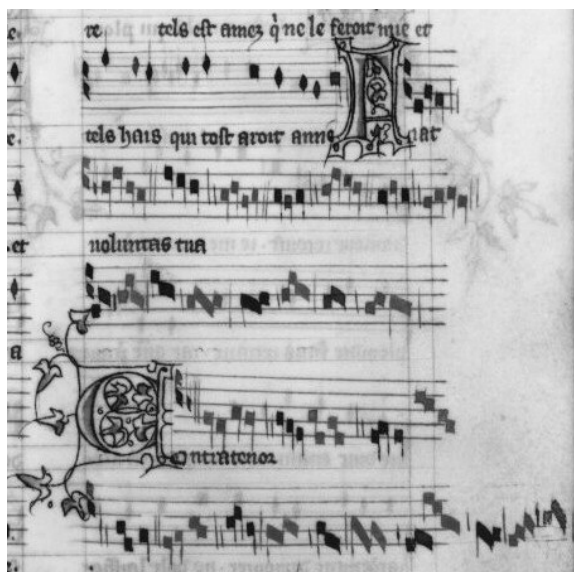 re tels est amez q̇ ne le feroit mie et
tels hais qui tost aroit amie Fiat
et uoluntas tua
a
Contratenor